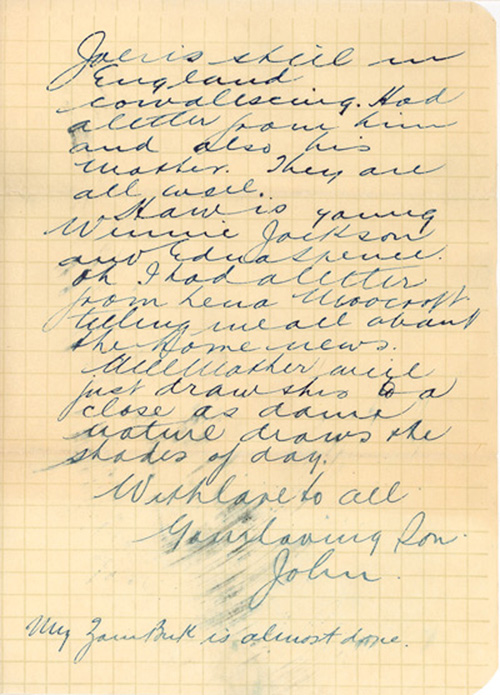 Joe is still in
England
convalescing. Had
a letter from him
and also his
Mother. They are
all well.
How is young
Winnie Jackson
and Edna Spence.
Oh I had a letter
from Lena Moocroft
telling me all about
the Home news.
Well Mother will
just draw this to a
close as dame
nature draws the
shades of day.
With love to all
Your loving Son.
John.
My Zam Buk is almost done.